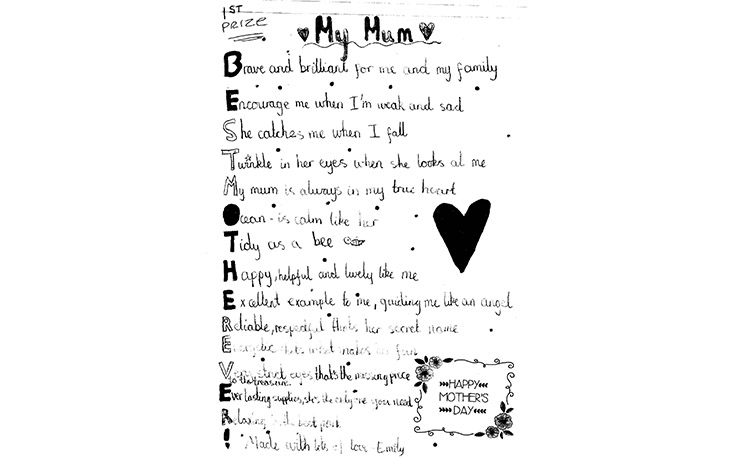 1ST
PRIZE
My Mum
Brave and brilliant for me and my family
Encourage me when I'm weak and sad
She catches me when I fall
Twinkle in her eyes when she looks at me
My mum is always in my true heart
Ocean - is calm like her
Tidy as a bee
Happy, helpful and lively like me
Excellent example to me, guiding me like an angel
Reliable, respectful thats her secret name
Energetic thats what makes her fun
eyes that's the missing piece
to the treasure
Ever lasting supplies, she's the only one you need
Relaxing is the best part
! Made with lots of love - Emily
HAPPY
MOTHER'S
DAY